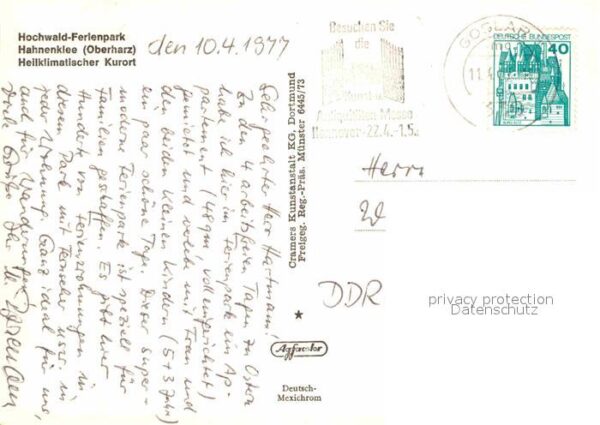 Hochwald-Ferienpark
Hahnenklee (Oberharz)
Heilklimatischer Kurort
den 10.4.1977
Sehr geehrter Herr Hartmann!
Zu den 4 arbeitsfreien Tagen zu Ostern
habe ich hier im Ferienpark ein Ap-
partement (48 qm, voll eingerichtet)
gemietet und verlebe mit Frau und
den beiden kleinen Kindern (5+3 Jahre)
ein paar schöne Tage. Dieser super-
moderne Ferienpark ist speziell für
Familien geschaffen. Es gibt hier
Hunderte von Ferienwohnungen in
diesem Park mit Fernseher usw. in
jeder Wohnung. Ganz ideal für uns,
und für Wanderungen.
Viele Grüße Ihr
Cramers Kunstanstalt KG, Dortmund
Freigeg. Reg.-Präs. Münster 6445/73
Agfacolor
Deutsch-
Mexichrom
Besuchen Sie
die
Kunst-u.
Antiquitäten-Messe
Hannover-22.4.-1.5.
GOSLAR
11.4
DEUTSCHE BUNDESPOST
40
Herrn
DDR
privacy protection
Datenschutz